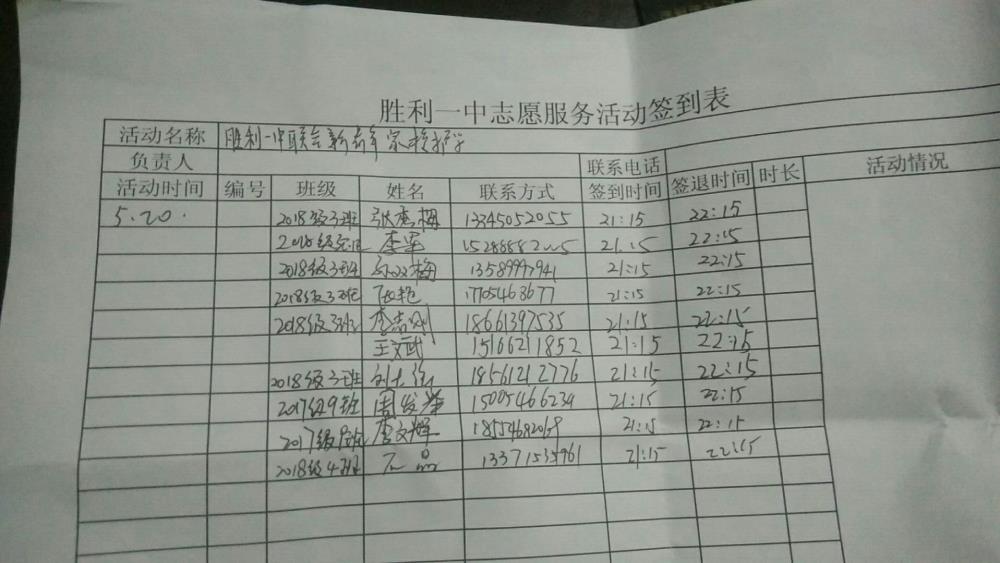 胜利一中志愿服务活动签到表
活动名称 胜利一中联合新青年家校护学
负责人 联系电话
活动时间 编号 班级 姓名 联系方式 签到时间 签退时间 时长 活动情况
5.20. 2018级3班 张秀梅 13345052055 21:15 22:15
2018级3班 李军 21:15 22:15
2018级3班 梅 13589997941 21:15 22:15
2018级3班 张艳 17705468677 21:15 22:15
2018级3班 李志刚 18661397535 21:15 22:15
王文武 15166211852 21:15 22:15
2018级3班 18561212776 21:15 22:15
2017级9班 周发 15005466239 21:15 22:15
2017级 李文辉 18554682069 21:15 22:15
2018级4班 石晶 13371535961 21:15 22:15